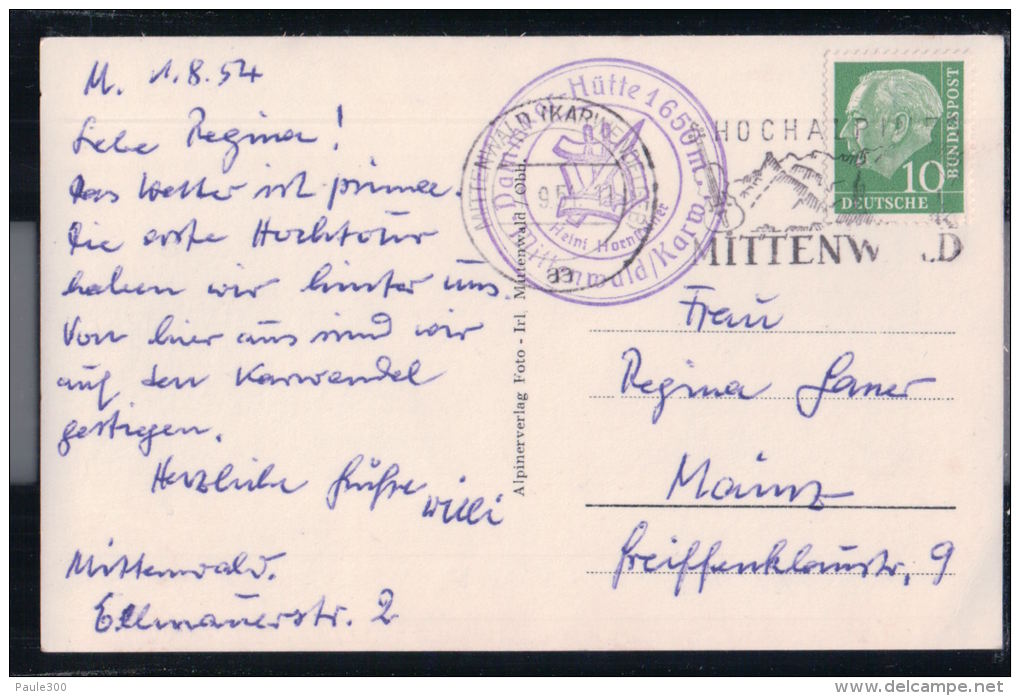 M. 1.8.54
Liebe Regina!
Das Wetter ist prima.
Die erste Hochtour
haben wir hinter uns.
Von hier aus sind wir
auf den Karwendel
gestiegen.
Herzliche Grüße
Willi
Mittenwald.
Ellmauerstr. 2
Alpinerverlag Foto - Irl, Mittenwald / Obb.
Dammkar-Hütte 1650m.
Mittenwald/Karw
Heini
MITTENWALD (KARWENDELGEB
HOCHALPINE
MITTENW D
10
DEUTSCHE
BUNDESPOST
Frau
Regina
Mainz
Greiffenklaustr, 9
Paule300
www.delcampe.net